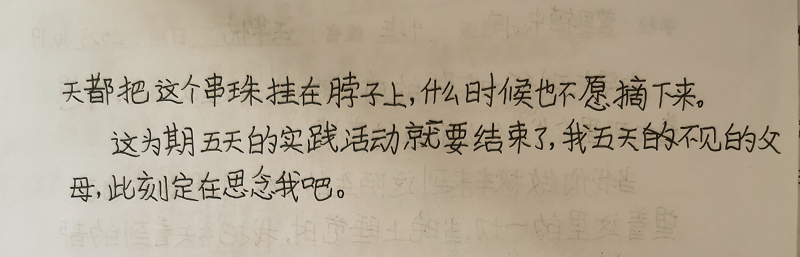 天都把这个串珠挂在脖子上,什么时候也不愿摘下来。
这为期五天的实践活动就要结束了,我五天的不见的父
母,此刻定在思念我吧。